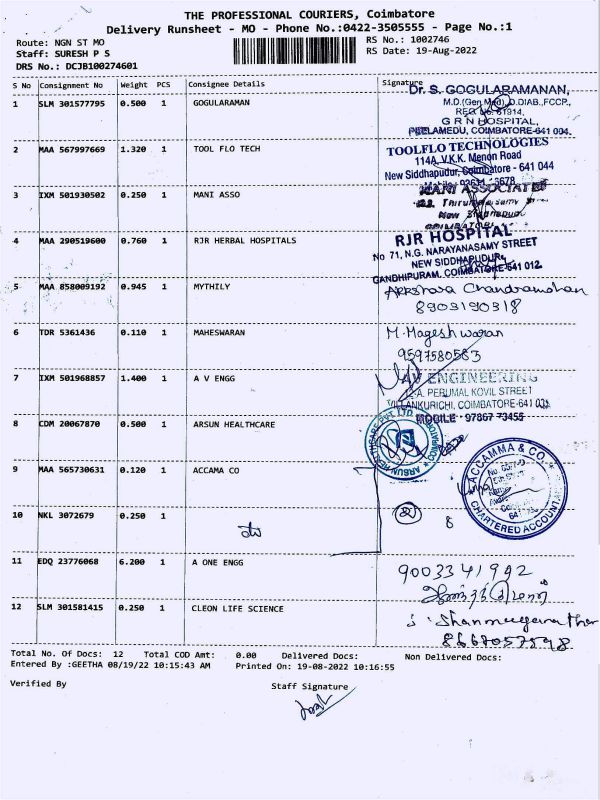 THE PROFESSIONAL COURIERS, Coimbatore
Delivery Runsheet - MO - Phone No.:0422-3505555 - Page No.:1
Route: NGN ST MO
Staff: SURESH P S
DRS No.: DCJB100274601
RS No.: 1002746
RS Date: 19-Aug-2022
S No Consignment No Weight PCS Consignee Details Signature
1 SLM 301577795 0.500 1 GOGULARAMAN
Dr. S. GOGULARAMANAN,
M.D.(Gen Med), D.DIAB.,FCCP.,
REG No. 61914,
G R N HOSPITAL,
PEELAMEDU, COIMBATORE-641 004.
2 MAA 567997669 1.320 1 TOOL FLO TECH
TOOLFLO TECHNOLOGIES
114A, V.K.K. Menon Road
New Siddhapudur, Coimbatore - 641 044
3 IXM 501930502 0.250 1 MANI ASSO
MANI ASSOCIATES
New Siddhapudur
COIMBATORE
4 MAA 290519600 0.760 1 RJR HERBAL HOSPITALS
RJR HOSPITAL
No 71, N.G. NARAYANASAMY STREET
NEW SIDDHAPUDUR,
GANDHIPURAM, COIMBATORE-641 012.
5 MAA 858009192 0.945 1 MYTHILY
Akkshara Chandramohan
8903190318
6 TDR 5361436 0.110 1 MAHESWARAN
M. Mageshwaran
9597580583
7 IXM 501968857 1.400 1 A V ENGG
AV ENGINEERING
PERUMAL KOVIL STREET
COIMBATORE-641 035
MOBILE 97867 73455
8 CDM 20067870 0.500 1 ARSUN HEALTHCARE
ARSUN HEALTHCARE PVT LTD COIMBATORE
9 MAA 565730631 0.120 1 ACCAMA CO
ACCAMMA & CO.
CHARTERED ACCOUNTANTS
10 NKL 3072679 0.250 1
8
11 EDQ 23776068 6.200 1 A ONE ENGG
9003341992
12 SLM 301581415 0.250 1 CLEON LIFE SCIENCE
8667057598
Total No. Of Docs: 12 Total COD Amt: 0.00 Delivered Docs: Non Delivered Docs:
Entered By :GEETHA 08/19/22 10:15:43 AM Printed On: 19-08-2022 10:16:55
Verified By Staff Signature